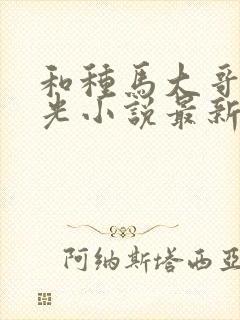 和種馬大哥
光小說最新
阿纳斯塔西亚